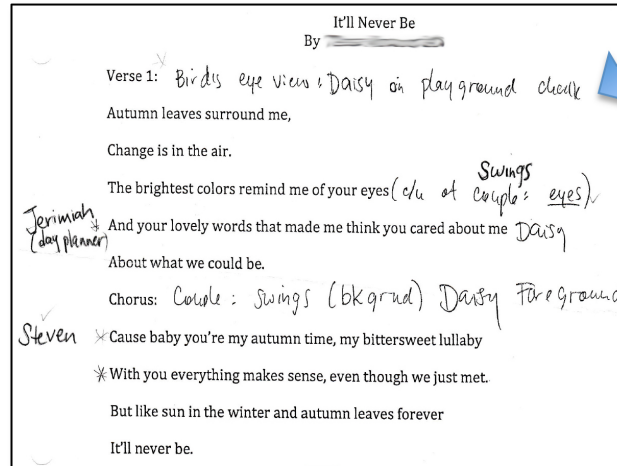 It'll Never Be
By
Verse 1: Birds eye view: Daisy on playground chalk
Autumn leaves surround me,
Change is in the air.
Swings
The brightest colors remind me of your eyes (c/u of couple: eyes)
Jerimiah
(day planner)
* And your lovely words that made me think you cared about me Daisy
About what we could be.
Chorus: Couple: swings (bkgrnd) Daisy Foreground
Steven * Cause baby you're my autumn time, my bittersweet lullaby
* With you everything makes sense, even though we just met.
But like sun in the winter and autumn leaves forever
It'll never be.